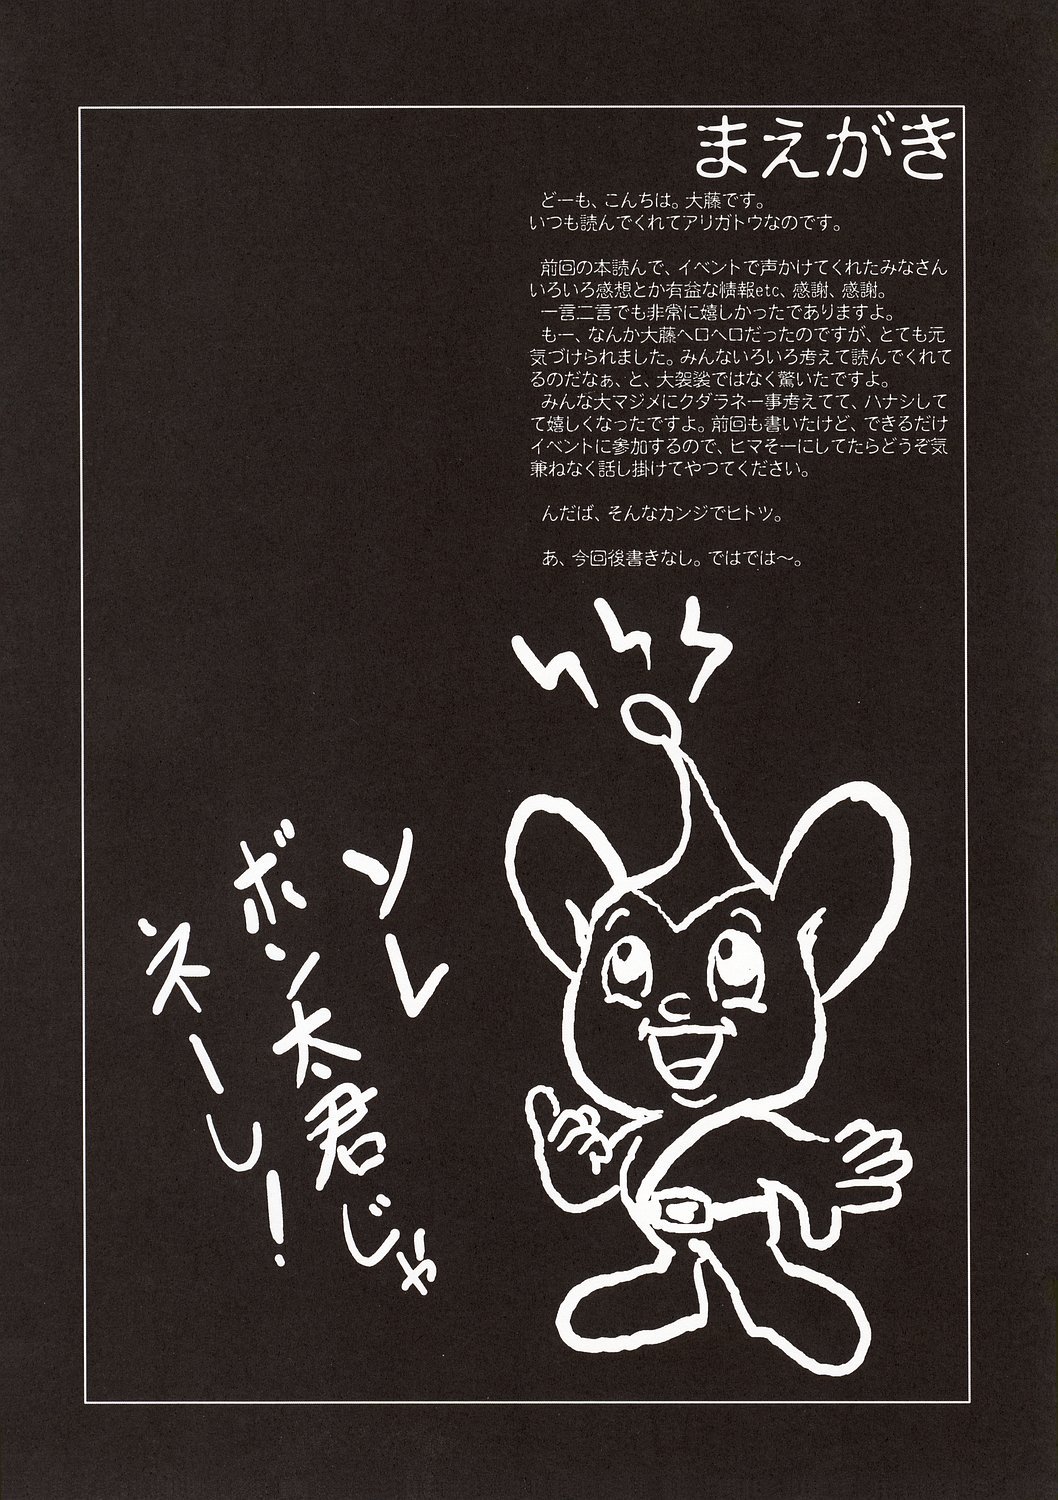 まえがき
どーも、こんちは。大藤です。
いつも読んでくれてアリガトウなのです。
前回の本読んで、イベントで声かけてくれたみなさん
いろいろ感想とか有益な情報etc、感謝、感謝。
一言二言でも非常に嬉しかったでありますよ。
もー、なんか大藤ヘロヘロだったのですが、とても元
気づけられました。みんないろいろ考えて読んでくれて
るのだなぁ、と、大袈裟ではなく驚いたですよ。
みんな大マジメにクダラネー事考えてて、ハナシして
て嬉しくなったですよ。前回も書いたけど、できるだけ
イベントに参加するので、ヒマそーにしてたらどうぞ気
兼ねなく話し掛けてやつてください。
んだば、そんなカンジでヒトツ。
あ、今回後書きなし。ではでは〜。
ソレ
ボン太君じゃ
ネーし!